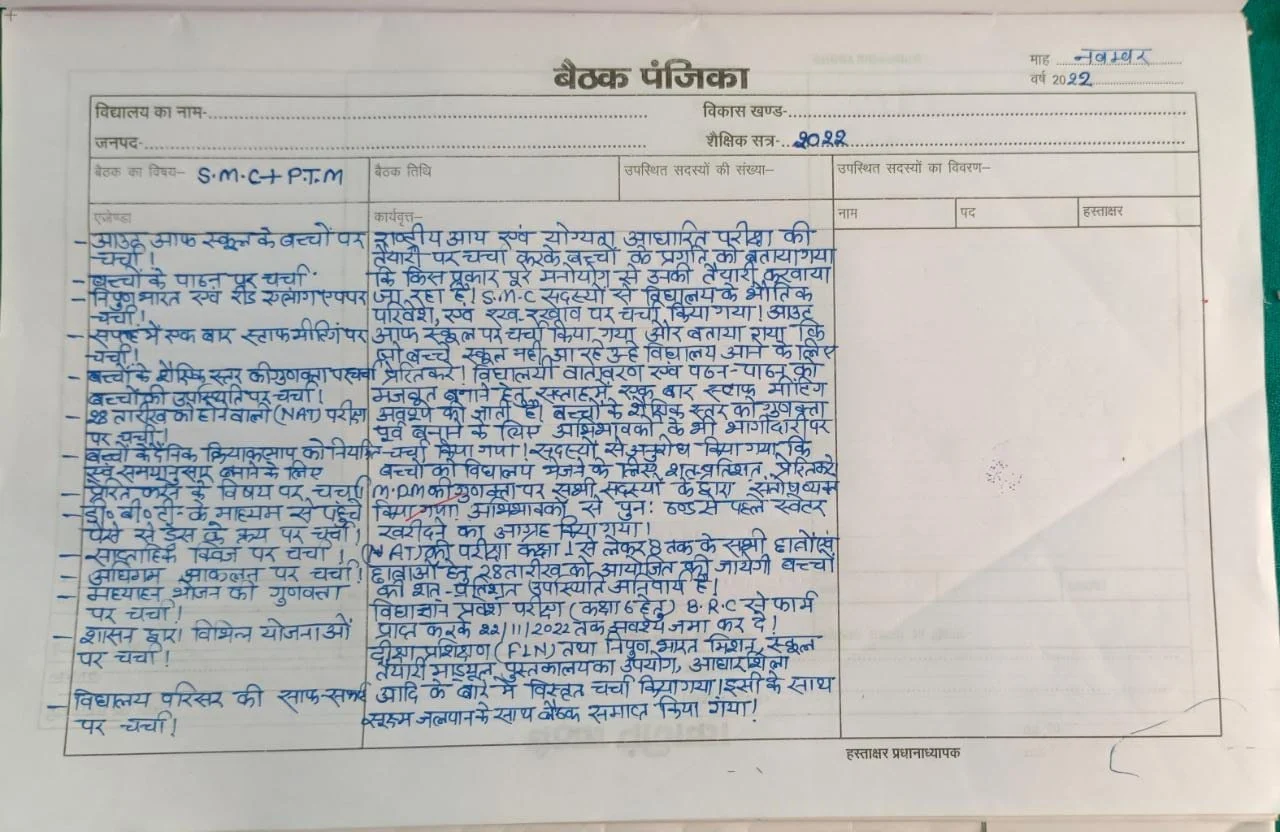 माह नवम्वर
बैठक पंजिका
वर्ष 2022
विद्यालय का नाम-
विकास खण्ड-
जनपद-
शैक्षिक सत्र- 2022
बैठक का विषय– S.M.C+P.T.M
बैठक तिथि
उपस्थित सदस्यों की संख्या–
उपस्थित सदस्यों का विवरण–
एजेण्डा
- आउट आफ स्कूल के बच्चों पर
चर्चा।
- बच्चों के पाठन पर चर्चा
- निपुण भारत एवं रीड एलांग एप पर
चर्चा।
- सप्ताह में एक बार स्टाफ मीटिंग पर
चर्चा।
- बच्चों के शैक्षिक स्तर की गुणवत्ता पर चर्चा
बच्चों की उपस्थिति पर चर्चा।
- 28 तारीख को होने वाली (NAT) परीक्षा
पर चर्चा।
- बच्चों के दैनिक क्रियाकलाप को नियमित
एवं समयानुसार बनाने के लिए
- प्रेरित करने के विषय पर चर्चा।
- डी० बी० टी० के माध्यम से पहुंचे
पैसे से ड्रेस के क्रय पर चर्चा।
- साप्ताहिक क्विज पर चर्चा।
- अधिगम आकलन पर चर्चा।
- मध्याहन भोजन की गुणवत्ता
पर चर्चा।
- शासन द्वारा विभिन्न योजनाओं
पर चर्चा।
- विद्यालय परिसर की साफ-सफाई
पर चर्चा।
कार्यवृत्त–
राष्ट्रीय आय एवं योग्यता आधारित परीक्षा की
तैयारी पर चर्चा करके बच्चों के प्रगति को बताया गया
कि किस प्रकार पूरे मनोयोग से उनकी तैयारी करवाया
जा रहा है। S.M.C सदस्यों से विद्यालय के भौतिक
परिवेश, एवं रख-रखाव पर चर्चा किया गया। आउट
आफ स्कूल पर चर्चा किया गया और बताया गया कि
जो बच्चे स्कूल नहीं आ रहे उन्हे विद्यालय आने के लिए
प्रेरित करे। विद्यालयी वातावरण एवं पठन-पाठन को
मजबूत बनाने हेतु सप्ताह में एक बार स्टाफ मीटिंग
अवश्य की जाती है। बच्चों के शैक्षिक स्तर को गुणवत्ता
पूर्व बनाने के लिए अभिभावकों के भी भागीदारी पर
चर्चा किया गया। सदस्यों से अनुरोध किया गया कि
बच्चों को विद्यालय भेजने के लिए शत-प्रतिशत प्रेरित करे
M.D.M की गुणवत्ता पर सभी सदस्यों के द्वारा
किया गया अभिभावकों से पुनः ठण्ड से पहले स्वेटर
खरीदने का आग्रह किया गया।
(NAT) की परीक्षा कक्षा 1 से लेकर 8 तक के सभी छात्रों एवं
छात्राओं हेतु 28 तारीख को आयोजित की जायेगी बच्चों
की शत-प्रतिशत उपस्थिति अनिवार्य है।
विद्याज्ञान प्रवेश परीक्षा (कक्षा 6 हेतु) B.R.C से फार्म
प्राप्त करके 22/11/2022 तक अवश्य जमा कर दे।
दीक्षा प्रशिक्षण (FLN) तथा निपुण भारत मिशन, स्कूल
तैयारी माड्यूल, पुस्तकालय का उपयोग, आधारशिला
आदि के बारे में विस्तृत चर्चा किया गया। इसी के साथ
सूक्ष्म जलपान के साथ बैठक समाप्त किया गया।
नाम
पद
हस्ताक्षर
हस्ताक्षर प्रधानाध्यापक